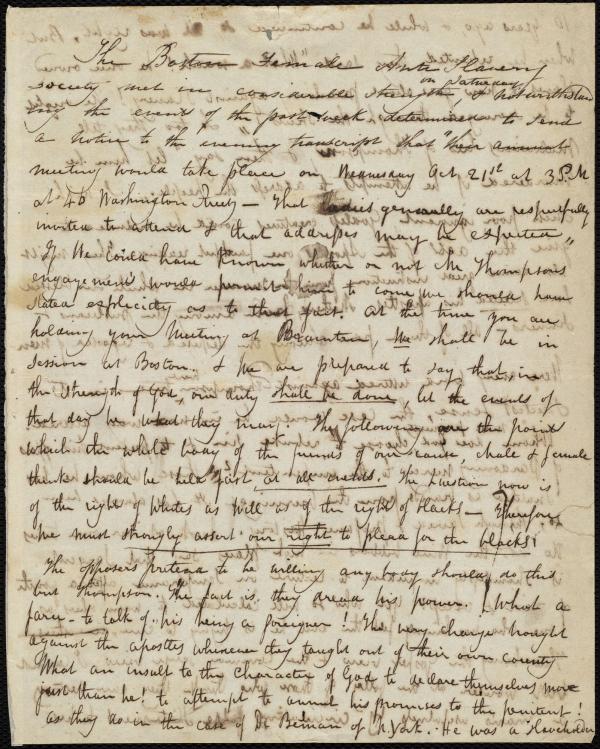 The Boston Female Anti Slavery
on Saturday
society met in considerable strength, & notwithstand
ing the events of the past week determined to send
a notice to the evening transcript that "their annual
meeting would take place on Wednesday Oct. 21st at 3 P.M
at 46 Washington Street — that ladies generally are respectfully
invited to attend & that addresses may be expected"
If We could have known whether or not Mr Thompsons
engagements would permit him to come, we should have
stated explicitly as to that fact. At the time you are
holding your meeting at Braintree, We shall be in
session at Boston. & we are prepared to say that, in
the strength of God, our duty shall be done, let the events of
that day be what they may. The following are the points
which the whole body of the friends of our cause, male & female
think should be held fast, at all events. The question now is
of the right of whites as well as of the right of blacks — Therefore
we must strongly assert our right to plead for the blacks!
The opposers pretend to be willing any body should do this
but Thompson. The fact is, they dread his power. What a
farce - to talk of his being a foreigner! The very charge brought
against the apostles whenever they taught out of their own country
What an insult to the character of God to declare themselves more
just than he! to attempt to annul his promises to the penitent!
as they do in the case of Dr Beman of N. York. He was a slaveholder